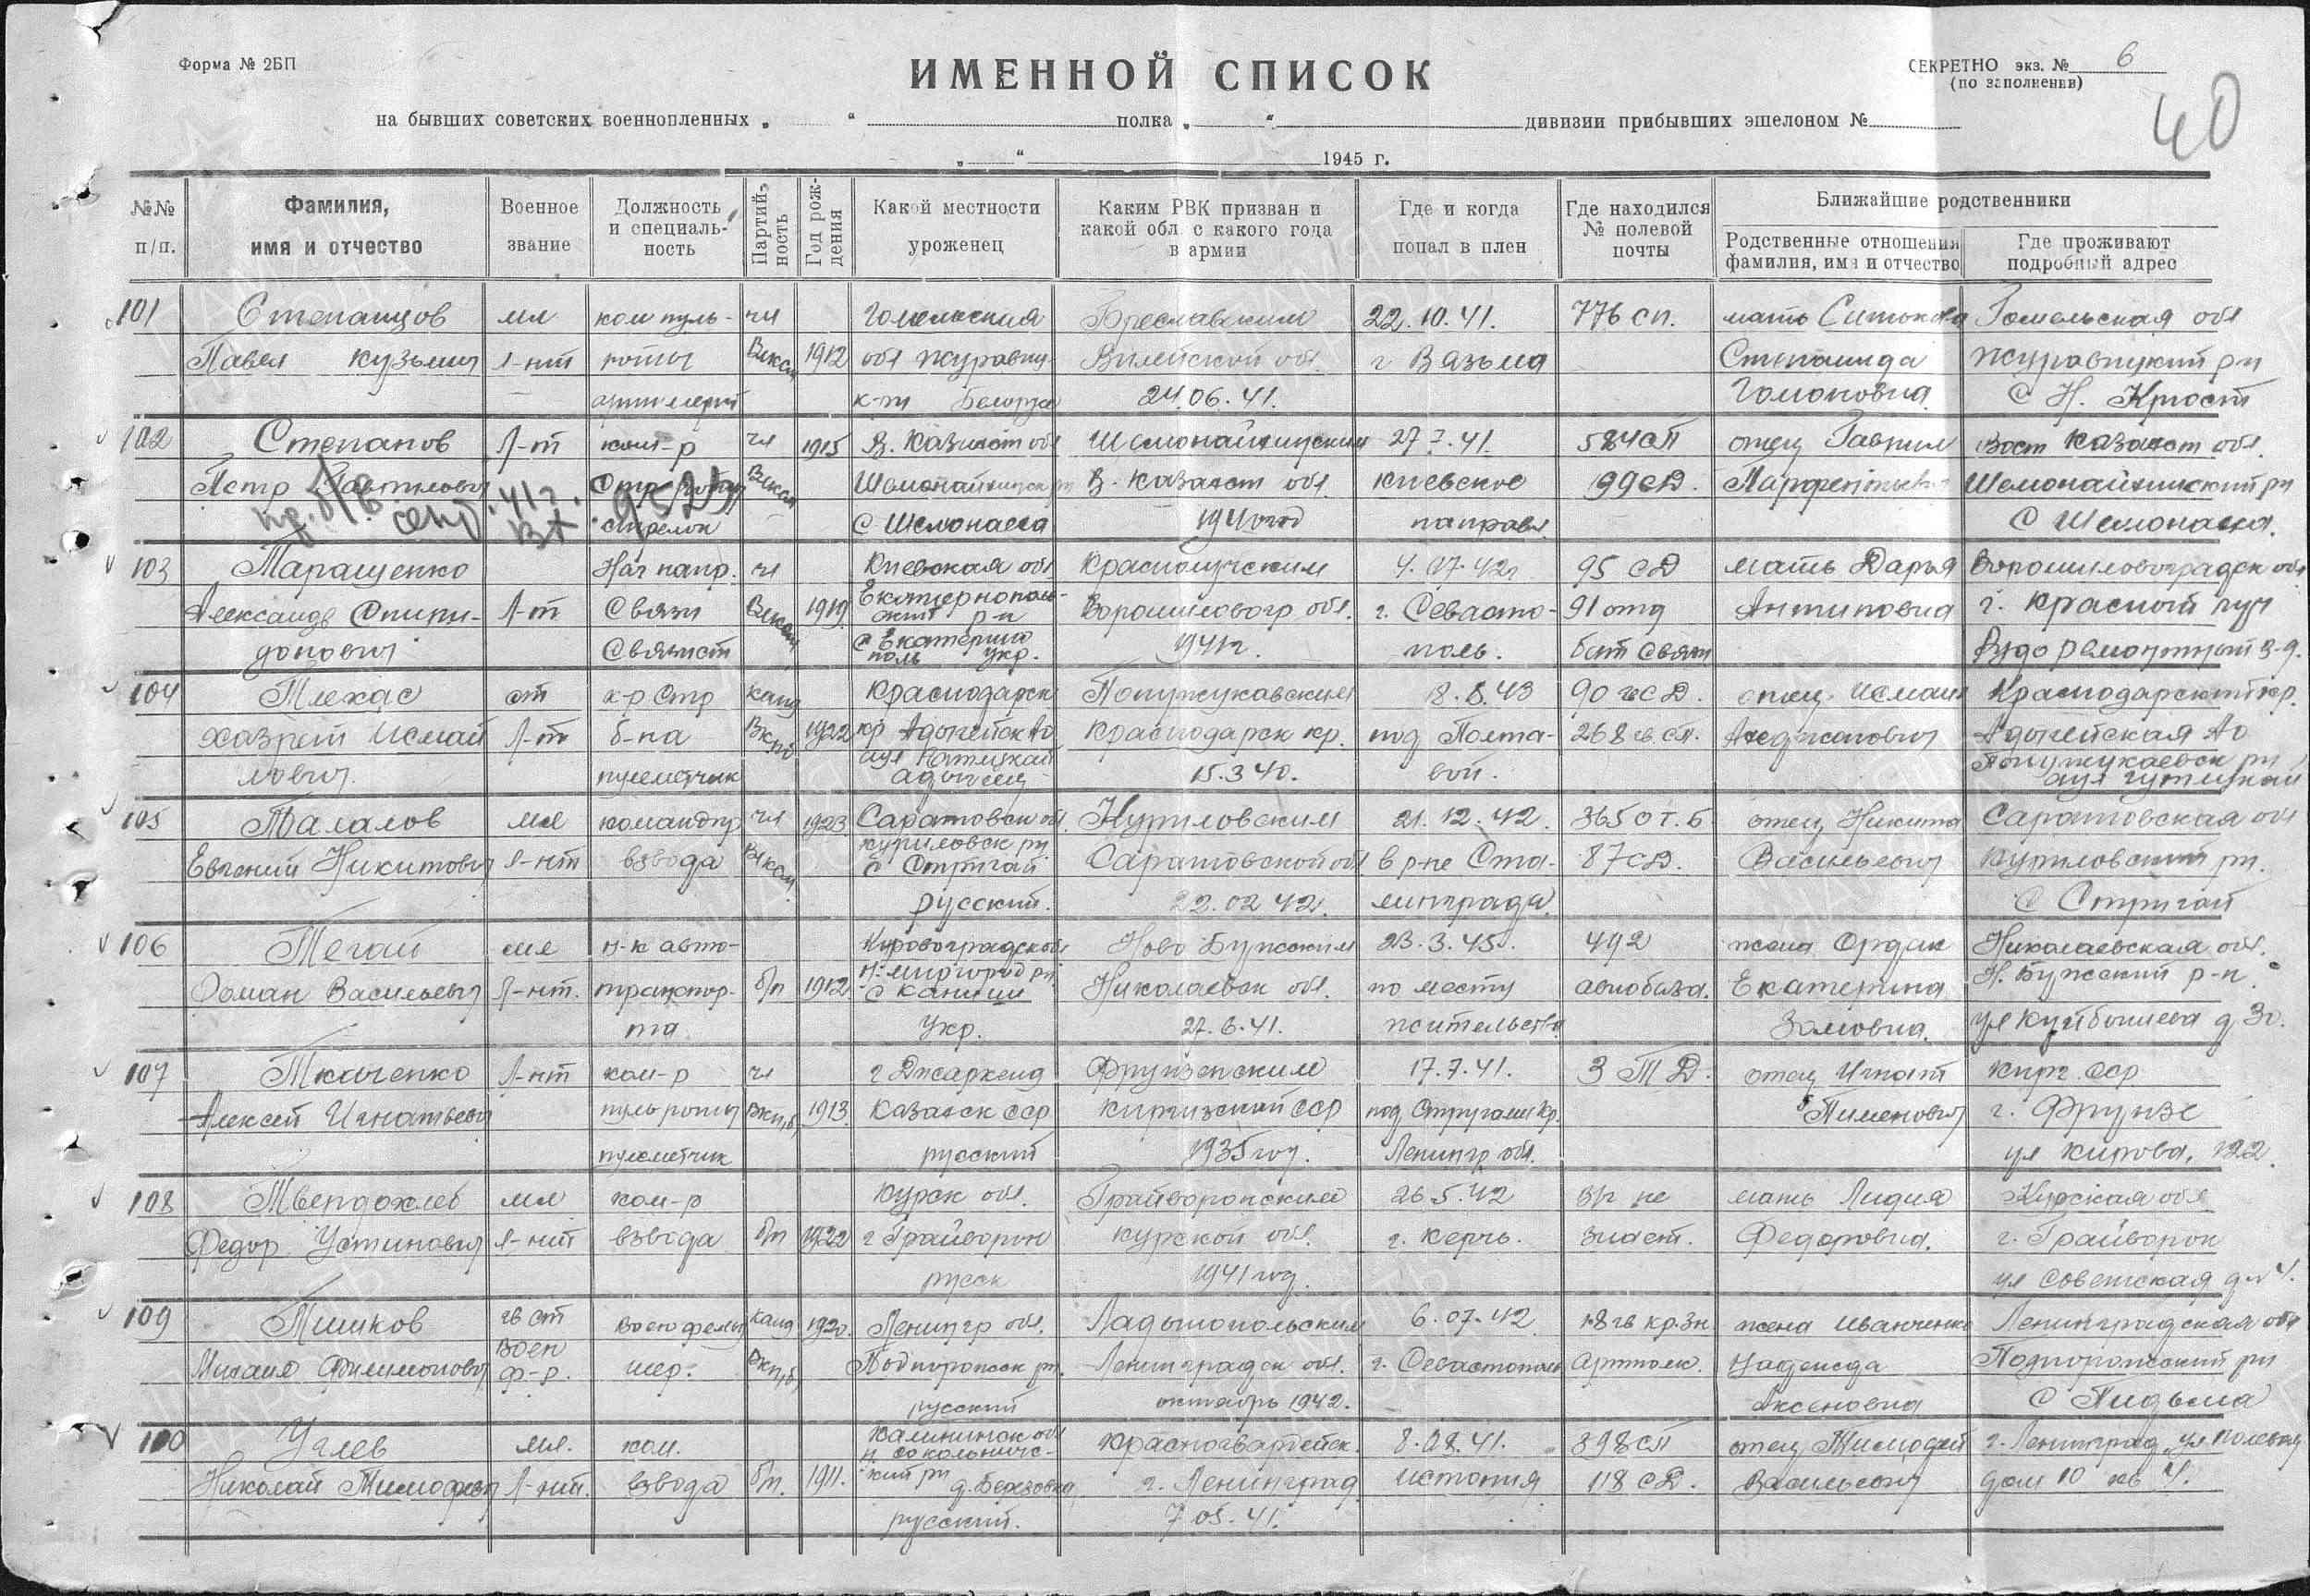 Форма № 2БП
ИМЕННОЙ СПИСОК
СЕКРЕТНО экз. № 6
(по заполнении)
40
на бывших советских военнопленных „ “ полка „ “ дивизии прибывших эшелоном №
„ “ 1945 г.
№№ п/п.
Фамилия, имя и отчество
Военное звание
Должность и специаль-ность
Партий-ность
Год рож-дения
Какой местности уроженец
Каким РВК призван и какой обл. с какого года в армии
Где и когда попал в плен
Где находился № полевой почты
Ближайшие родственники
Родственные отношения фамилия, имя и отчество
Где проживают подробный адрес
101 Степанцов мл ком пуль- чл Гомельская Бреславским 22.10.41. 776 сп. мать Гомельская обл
Павел Кузьмич л-нт роты Влксм 1912 обл Журавич- Вилейской обл. г Вязьма Степанида Журавичский р-н
к-ий 24.06.41. с Н.
102 Степанов л-т ком-р чл 1915 В. Казахст обл Шемонайхинским 27.7.41. 584 сп отец Гаврил Вост Казахст обл.
Петр Гаврилович Стр роты Влксм Шемонайхинск рн В-Казахст обл. Киевское 199 сд. Парфентьев Шемонайхинский рн
пр. б/в сент. 41 г. ВТ 9525
стрелок с Шемонаеха 1940 год направл. с Шемонаеха.
103 Таращенко Нач напр. чл Киевская обл Краснолучским 4.07.42г 95 СД мать Дарья Ворошиловоградск обл
Александр Спири- л-т Связи Влксм 1919. Екатеринополь-ский р-н Ворошиловогр обл. г. Севасто- 91 отд Антиповна г. Красный луч
донович Связист с Екатерино поль укр. 1941г. поль. бат связи Рудо ремонтный з-д.
104 Тлехас ст к-р Стр канд Краснодарск Понужукавским 18.8.43 90 гв СД. отец Исмаил Краснодарский кр.
Хазрет Исмай л-т б-на Вкпб 1922 кр Адыгейск Ао Краснодарск кр. под Полта- 268 гв. сп. Адыгейская Ао
лович. пулеметчик адыгеец 15.3.40. вой. Понужукаевск рн
105 Талалов мл командир чл 1923 Саратовск обл. Куриловским 21.12.42. 365 О.Т.Б отец Никита Саратовская обл
Евгений Никитович л-нт взвода Влксм Куриловск рн с Стригай Саратовской обл в р-не Ста- 87 СД. Васильевич Куриловский рн.
русский. 22.02.42. линграда. с Стригай
106 Тегай мл н-к авто- Кировоградск обл Ново Бугским 23.3.45. 492 жена Ордак Николаевская обл.
Роман Васильевич л-нт. транспор- б/п 1912 рн. Николаевск обл. по месту авиобаза. Екатерина Н. Бугский р-н
та Укр. 27.6.41. жительства ул Куйбышева д 30.
107 Ткаченко л-нт ком-р чл г Джаркенд Фрунзенским 17.7.41. 3 ТД. отец Игнат Кирг. сср
Алексей Игнатьевич пульроты Вкп,б, 1913. Казахск сср Киргизской сср под Стругами Кр. Пименович г. Фрунзе
пулеметчик русский 1935 год. Ленингр обл. ул Кирова, 122.
108 Твердохлеб мл ком-р Курск обл. Грайворонским 26.5.42 в/ч не мать Лидия Курская обл
Федор Устинович л-нт взвода б/п 1922 г Грайворон Курской обл. г. Керчь. знает. Федоровна. г. Грайворон
русск 1941 год. ул Советская д № 4.
109 Тишков гв ст военфельд канд 1920. Ленингр обл. Ладынопольским 6.07.42 18 гв кр.зн жена Иванченко Ленинградская обл
Михаил Филимонович воен ф-р. шер. вкп,б, Подпорожск рн. Ленинградск обл. г. Севастополь артполк. Надежда Подпорожский рн
русский октябрь 1942. Аксеновна с Пидьма
100 Углев мл. ком. Калининск обл Красногвардейск. 8.08.41. 398 сп отец Тимофей г. Ленинград ул Полевая
Николай Тимофеев л-нт. взвода б/п. 1911. д. Березовка г. Ленинград Истония 118 СД. Васильевич дом 10 кв 4.
русский. 7 05.41.